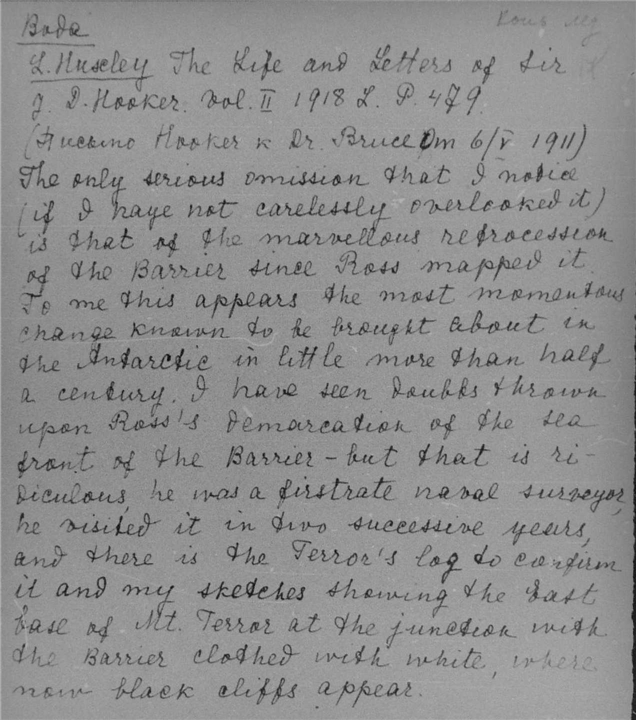 Вода
L. Huxley The Life and Letters of Sir
J. D. Hooker. Vol. II 1918 L. P. 479.
(Письмо Hooker к Dr. Bruce от 6/V 1911)
The only serious omission that I notice
(if I haye not carelessly overlooked it)
is that of the marvellous retrocession
of the Barrier since Ross mapped it.
To me this appears the most momentous
change known to be brought about in
the Antarctic in little more than half
a century. I have seen doubts thrown
upon Ross's demarcation of the sea
front of the Barrier – but that is ri-
diculous, he was a firstrate naval surveyor,
he visited it in two successive years,
and there is the Terror's log to confirm
it and my sketches showing the East
base of Mt. Terror at the junction with
the Barrier clothed with white, where
now black cliffs appear.